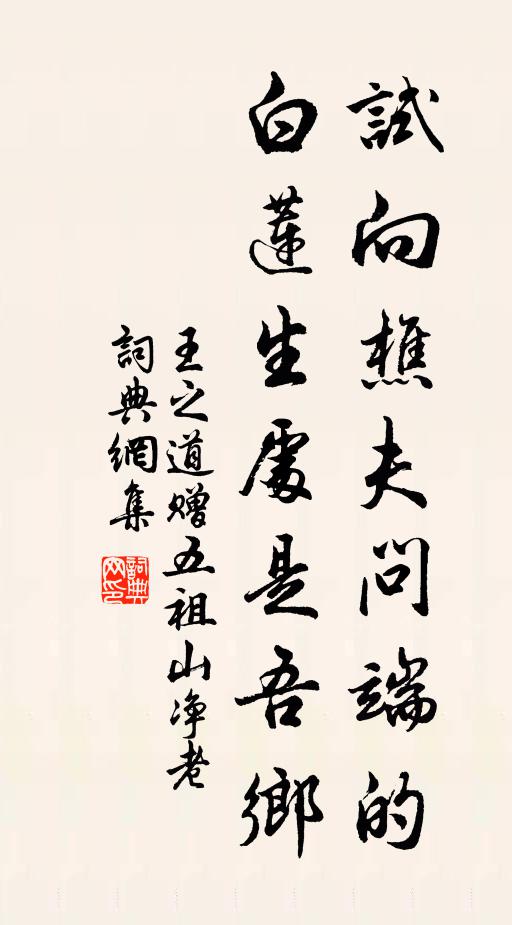 試向樵夫問端的
白蓮生處是吾鄉
王之道贈五祖山净老
詞典網集
詞典网印